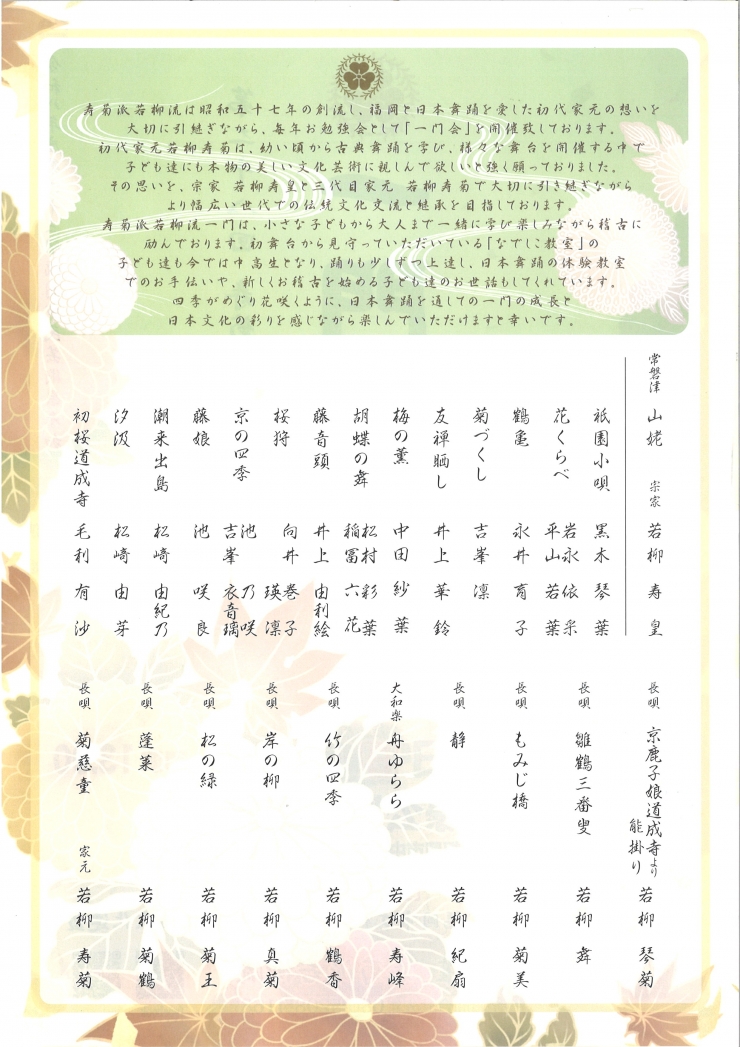 寿菊派若柳流は昭和五十七年の創流し、福岡と日本舞踊を愛した初代家元の想いを
大切に引継ぎながら、毎年お勉強会として「一門会」を開催致しております。
初代家元若柳寿菊は、幼い頃から古典舞踊を学び、様々な舞台を開催する中で
子ども達にも本物の美しい文化芸術に親しんで欲しいと強く願っておりました。
その思いを、宗家 若柳寿皇と三代目家元 若柳寿菊で大切に引き継ぎながら
より幅広い世代での伝統文化交流と継承を目指しております。
寿菊派若柳流一門は、小さな子どもから大人まで一緒に学び楽しみながら稽古に
励んでおります。初舞台から見守っていただいている「なでしこ教室」の
子ども達も今では中高生となり、踊りも少しずつ上達し、日本舞踊の体験教室
でのお手伝いや、新しくお稽古を始める子ども達のお世話もしてくれています。
四季がめぐり花咲くように、日本舞踊を通しての一門の成長と
日本文化の彩りを感じながら楽しんでいただけますと幸いです。
常磐津 山姥 宗家 若柳 寿皇
祇園小唄 黒木 琴葉
花くらべ 岩永 依采
平山 若葉
鶴亀 永井 育子
菊づくし 吉峯 凛
友禅晒し 井上 華鈴
梅の薫 中田 紗葉
胡蝶の舞 松村 彩葉
稲冨 六花
藤音頭 井上 由利絵
桜狩 向井 巻子
瑛凛
京の四季 池 乃咲
吉峯 衣音璃
藤娘 池 咲良
潮来出島 松﨑 由紀乃
汐汲 松﨑 由芽
初桜道成寺 毛利 有沙
長唄 京鹿子娘道成寺より
能掛り 若柳 琴菊
長唄 雛鶴三番叟 若柳 舞
長唄 もみじ橋 若柳 菊美
長唄 静 若柳 紀扇
大和楽 舟ゆらら 若柳 寿峰
長唄 竹の四季 若柳 鶴香
長唄 岸の柳 若柳 真菊
長唄 松の緑 若柳 菊王
長唄 蓬莱 若柳 菊鶴
長唄 菊慈童 家元 若柳 寿菊